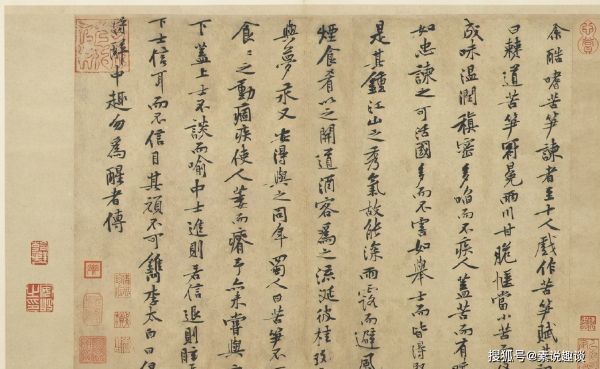 余酷嗜苦笋諫者至十人戲作苦笋賦其詞
曰僰道苦笋冠冕兩川甘脆愜當小苦而反
成味溫潤縝密多啗而不疾人蓋苦而有味
如忠諫之可活國多而不害如舉士而皆得
是其鍾江山之秀氣故能深雨露而避風
煙食肴以之開道酒客爲之流涎彼桂玫
與夢永又安得與之同年蜀人曰苦笋不
食〻之動痼疾使人萎而瘠予亦未嘗與之
下蓋上士不談而喻中士進則若信退則眩
下士信耳而不信目其頑不可鐫李太白曰但
得醉中趣勿爲醒者傳
搜狐号@素说趣谈